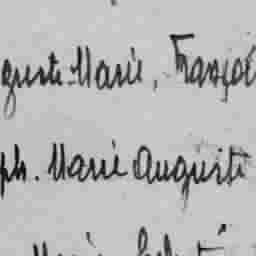 guste Marie, Françoi
ph. Marie Auguste